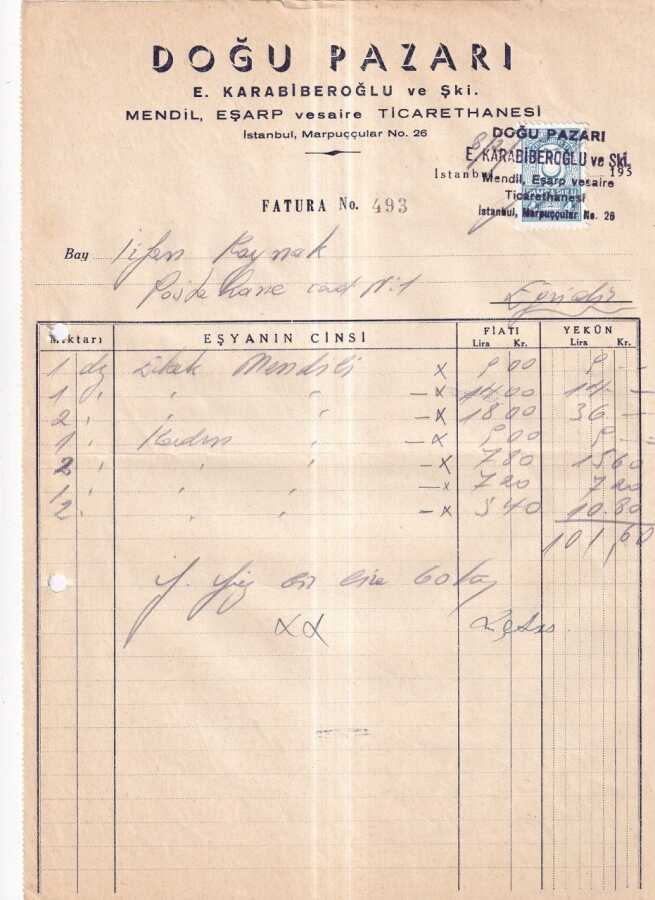 DOĞU PAZARI
E. KARABİBEROĞLU ve Şki.
MENDİL, EŞARP vesaire TİCARETHANESİ
İstanbul, Marpuççular No. 26
DOĞU PAZARI
E. KARABİBEROĞLU ve Şki.
İstanbul 195
Mendil, Eşarp vesaire
Ticarethanesi
İstanbul, Marpuççular No. 26
FATURA No. 493
Bay Kaynak
Posta Hane cad N: 1
Eğridir
Miktarı EŞYANIN CİNSİ FİATI YEKÛN
Lira Kr. Lira Kr.
1 dz Erkek Mendili x 9 00 9 --
1 " " " - x 14 00 14 -
2 " " - x 18 00 36 -
1 " Kadın " - x 9 00 9 --
2 " " " - x 7 80 15 60
1 " " " - x 7 20 7 20
2 " " " - x 5 40 10.80
101,60
Y. Yüz bir lira 60